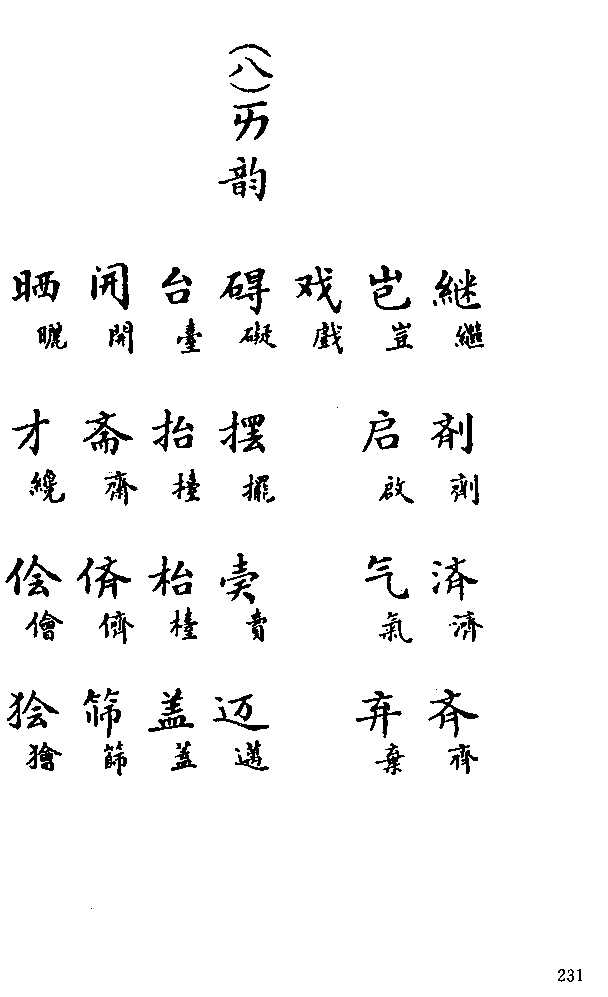 継 繼 剤 劑 済 濟 斉 齊
岂 豈 启 啟 气 氣 弃 棄
戏 戲
(八)ㄞ韵
碍 礙 摆 擺 卖 賣 迈 邁
台 臺 抬 擡 枱 檯 盖 蓋
開 開 斋 齋 侪 儕 筛 篩
晒 曬 才 纔 侩 儈 狯 獪
231